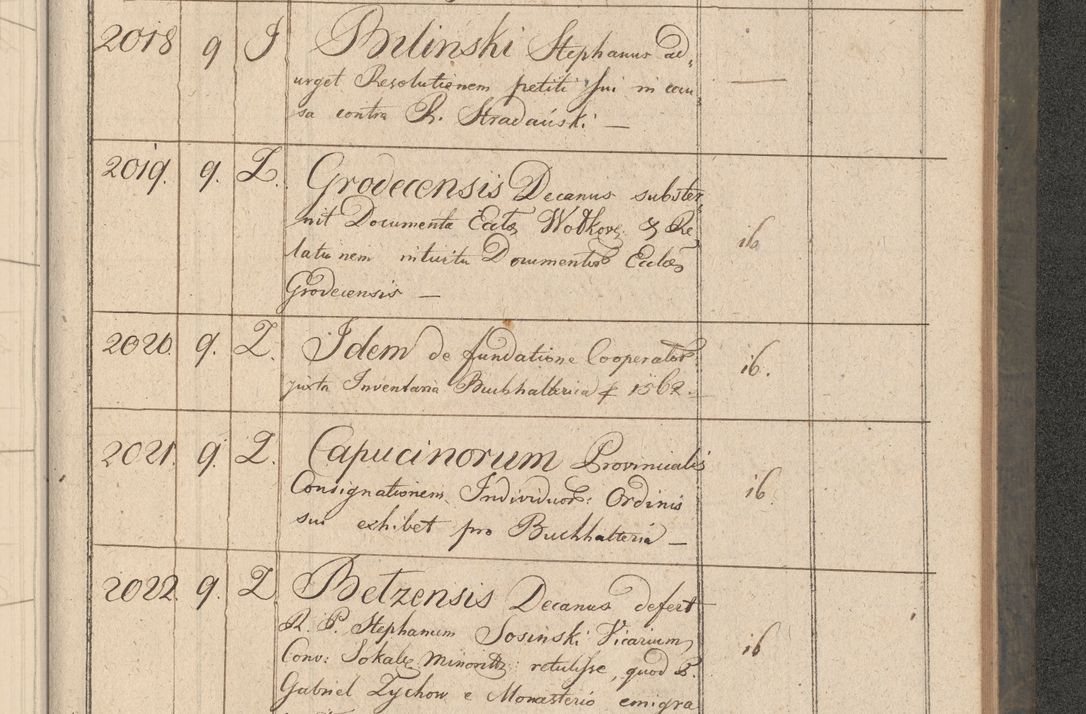 2018 9 J Bilinski Stephanus ad,
urget Resolutionem petiti sui in cau,
sa contra R. Stradański —
—
2019. 9. L. Grodecensis Decanus subster,
nit Documenta Eccłæ Wołkov. & Re,
latio nem intuitu Documentor Eccłæs
Grodecensis —
ib
2020. 9. L. Idem de fundatione Cooperator:
juxta Inventaria Buchhalterica f 1562. —
ib.
2021. 9. L. Capucinorum Provincialis
Consignationem Individuor: Ordinis
sui exhibet pro Buchhalteria —
ib
2022. 9. L Betzensis Decanus defert
R. P. Stephanum Sosinski Vicarium
Conv: Sokal: Minorit: retulisse, quod P.
Gabriel Zychow e Monasterio emigra
ib